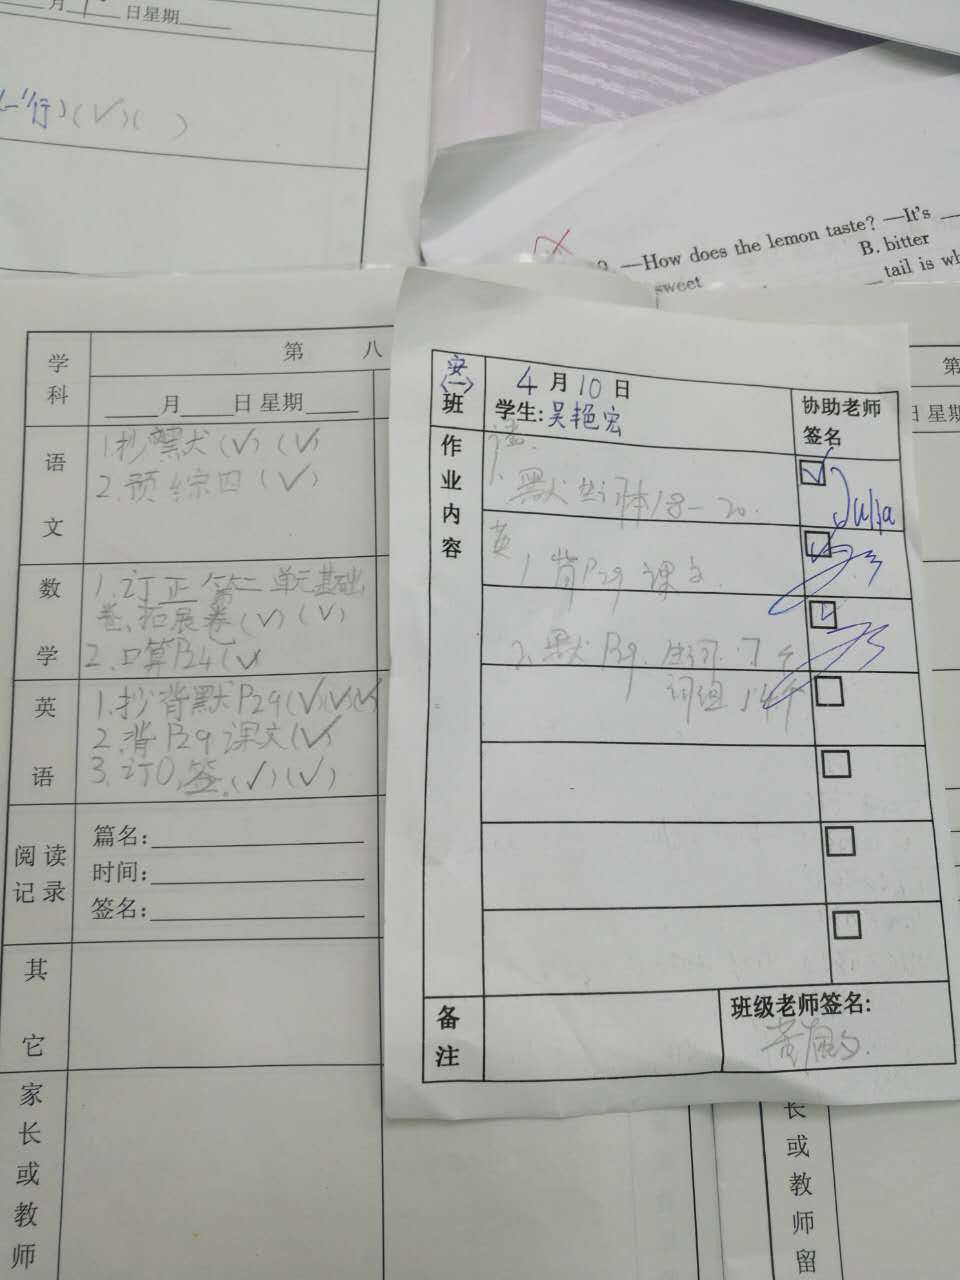 月 日星期
(一行)(√)( )
—How does the lemon taste? —It's
B. bitter
sweet
tail is wh
学科
第 八
第
月 日 星期
日 星期
语文
1.抄默(√)(√)
2.预综四(√)
数学
1.订正第二单元基础
卷、拓展卷(√)(√)
2.口算P24(√)
英语
1.抄背默P29(√)(√)(√)
2.背P29课文(√)
3.订 签.(√)(√)
阅读记录
篇名:
时间:
签名:
其它
家长或教师
安(一)班
4月10日
学生:吴艳宏
协助老师
签名
作业内容
语.
1.默 词本18-20.
Julia
英
1.背P29课文.
2.默P29.生词.7个
词组14个
备注
班级老师签名:
长或教师留